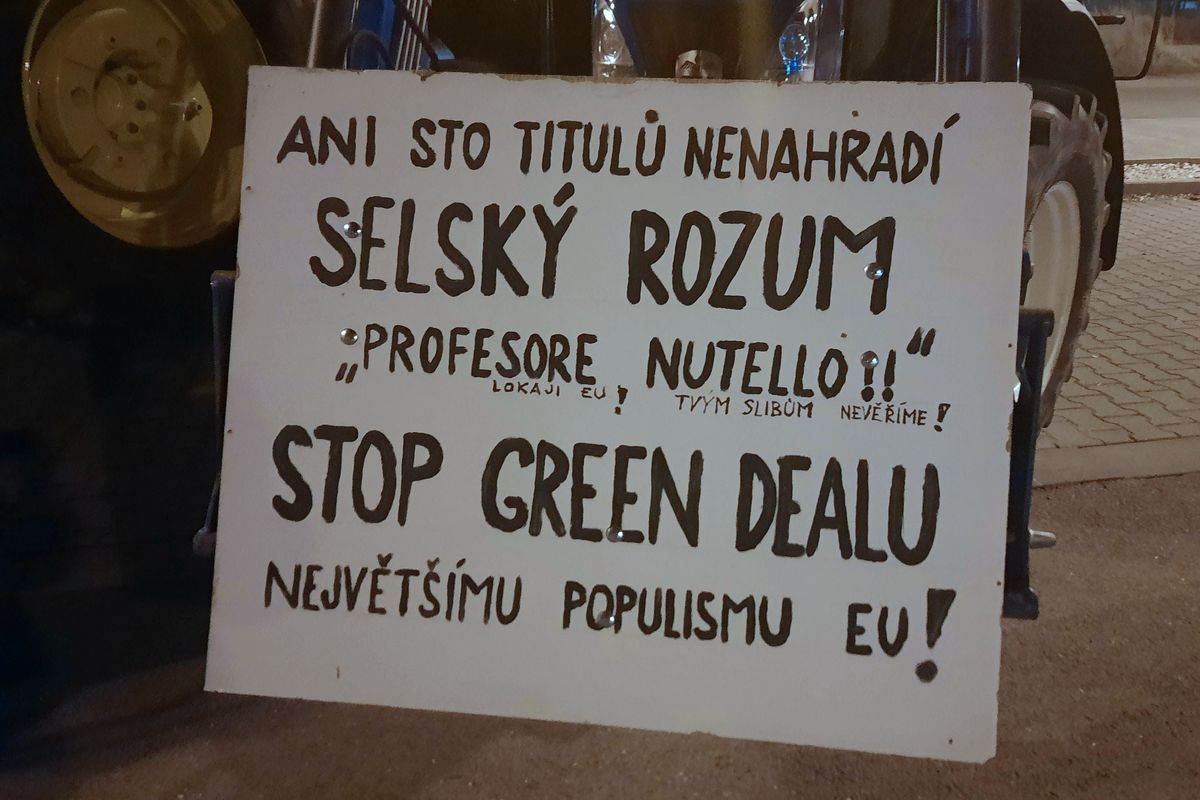 ANI STO TITULŮ NENAHRADÍ
SELSKÝ ROZUM
„PROFESORE NUTELLO!!“
LOKAJI EU! TVÝM SLIBŮM NEVĚŘÍME!
STOP GREEN DEALU
NEJVĚTŠÍMU POPULISMU EU!